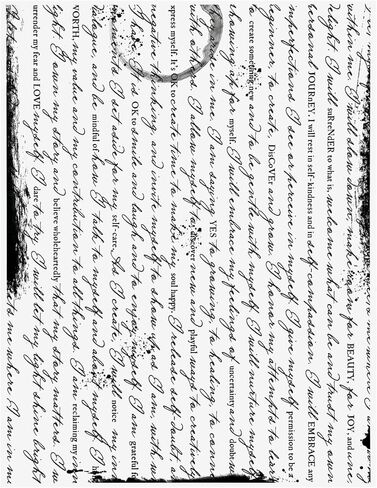 within me. I will slow down, make room for BEAUTY, for JOY, and
delight. I will suRreNdER to what is, welcome what can be and trust my own
personal JOURnEY. I will rest in self-kindness and in self-compassion. I will EMBRACE any
imperfections I see or perceive in myself. I give myself permission to be a
beginner, to create, DisCoVEr and grow. I honor my attempts to learn
create something new and to be gentle with myself. I will nurture myself
showing up for myself. I will embrace my feelings of uncertainty and doubt
in me. I am saying YES to growing, to healing, to conn
with others. I allow myself to discover new and playful ways to creatively
xpress myself. It's OK to create time to make my soul happy. I release self-doubt, a
negative thinking and invite myself to show I am, with w
I have. It is OK to smile and laugh and to enjoy myself. I am grateful fo
I set aside for my self-care. As I create, I will notice my inn
dialogue and be mindful of how I talk to myself and allow myself
WORTH, my value and my contribution to all things. I am reclaiming my
light. I own my story and believe wholeheartedly that my story matters. I w
urrender my fear and LOVE myself. I dare to try. I will let my light shine bright
me where I am in